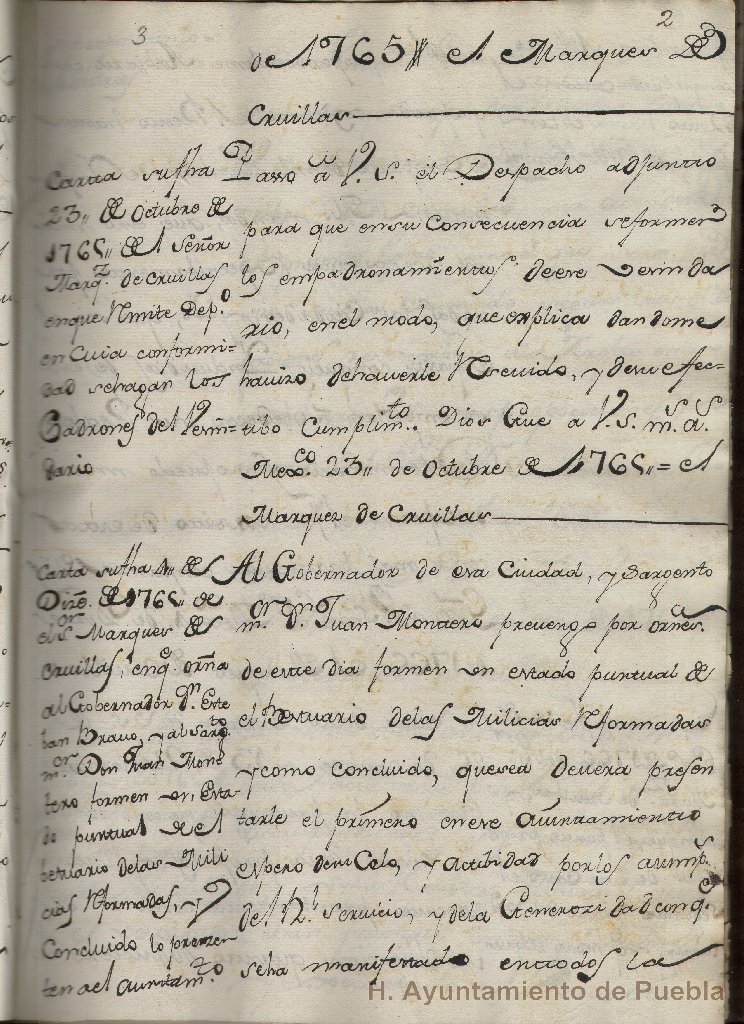 3
2
de 1765 „ el Marques de
Cruillas
Carta su fha
23„ de Octubre de
1765„ de el Señor
Marq.z de cruillas
en que Rmite Dep.o
en Cuia conformi=
dad sehagan los
Padrones del Vesin=
dario
Passo â V. S. el Despacho adjunto
para que ensu Consecuencia seformen
los empadronamientos de ese Vesinda
rio, en el modo, que explica dandome
haviso dehaverle Resevido, y desu efec=
tibo Cumplim.to Dios Gue a V. S. m.s a.s
Mex.co 23„ de Octubre de 1765„ = el
Marquez de Cruillas
Carta su fha 4„ de
Dize. de 1765„ de
el S.or Marques de
Cruillas, enq.e orñа
al Gobernador D.n Este
ban Bravo, y al Sarg.to
m.or Don Juan Mon=
tero formen un Esta=
do puntual de el
bestuario delas Mili
cias Rformadas, y
Concluido lo presen=
ten ael aiuntam.to
Al Gobernador de esa Ciudad, y Sargento
m.or D.n Juan Montero prevengo por orñes.
de este dia formen un estado puntual de
el Bestuario delas Milicias Rformadas
y como concluido, quesea devera presen
tarle el primero en ese Aiuntamiento
espero desu Celo, y actibidad por los asump.s
de R.l servicio, y dela Generozidad conq.e
seha manifestado entodos la
H. Ayuntamiento de Puebla